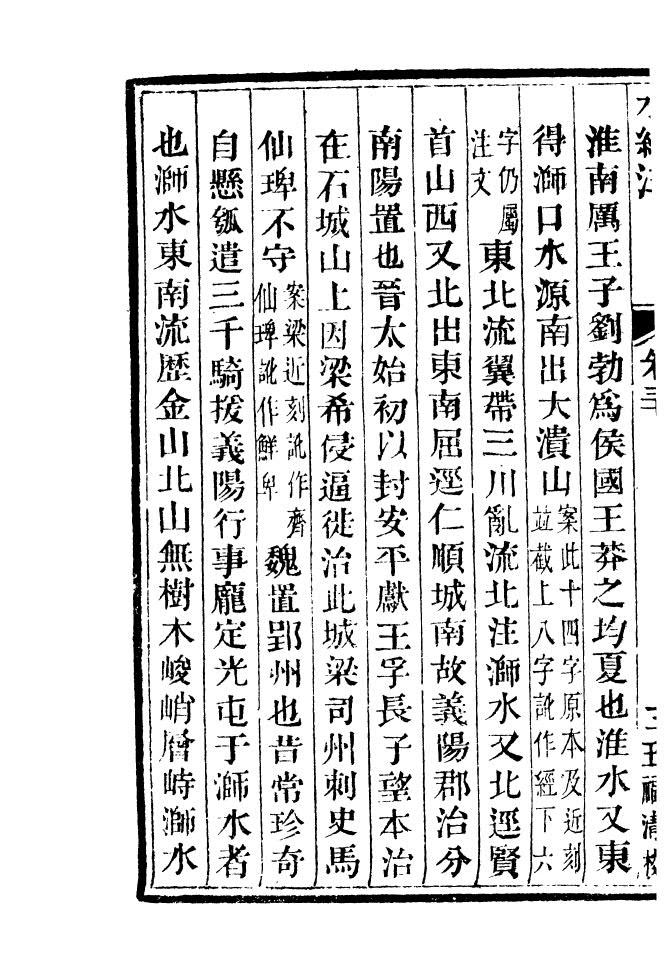 淮南厲王子劉勃爲侯國王莽之均夏也淮水又東
得溮口水源南出大潰山案此十四字原本及近刻
竝截上八字訛作經下六
字仍屬
注文東北流翼帶三川亂流北注溮水又北逕賢
首山西又北出東南屈逕仁順城南故義陽郡治分
南陽置也晉太始初以封安平獻王孚長子望本治
在石城山上因梁希侵逼徙治此城梁司州刺史馬
仙琕不守案梁近刻訛作齊
仙琕訛作鮮卑魏置郢州也昔常珍奇
自懸瓠遣三千騎援義陽行事龐定光屯于溮水者
也溮水東南流歷金山北山無樹木峻峭層峙溮水